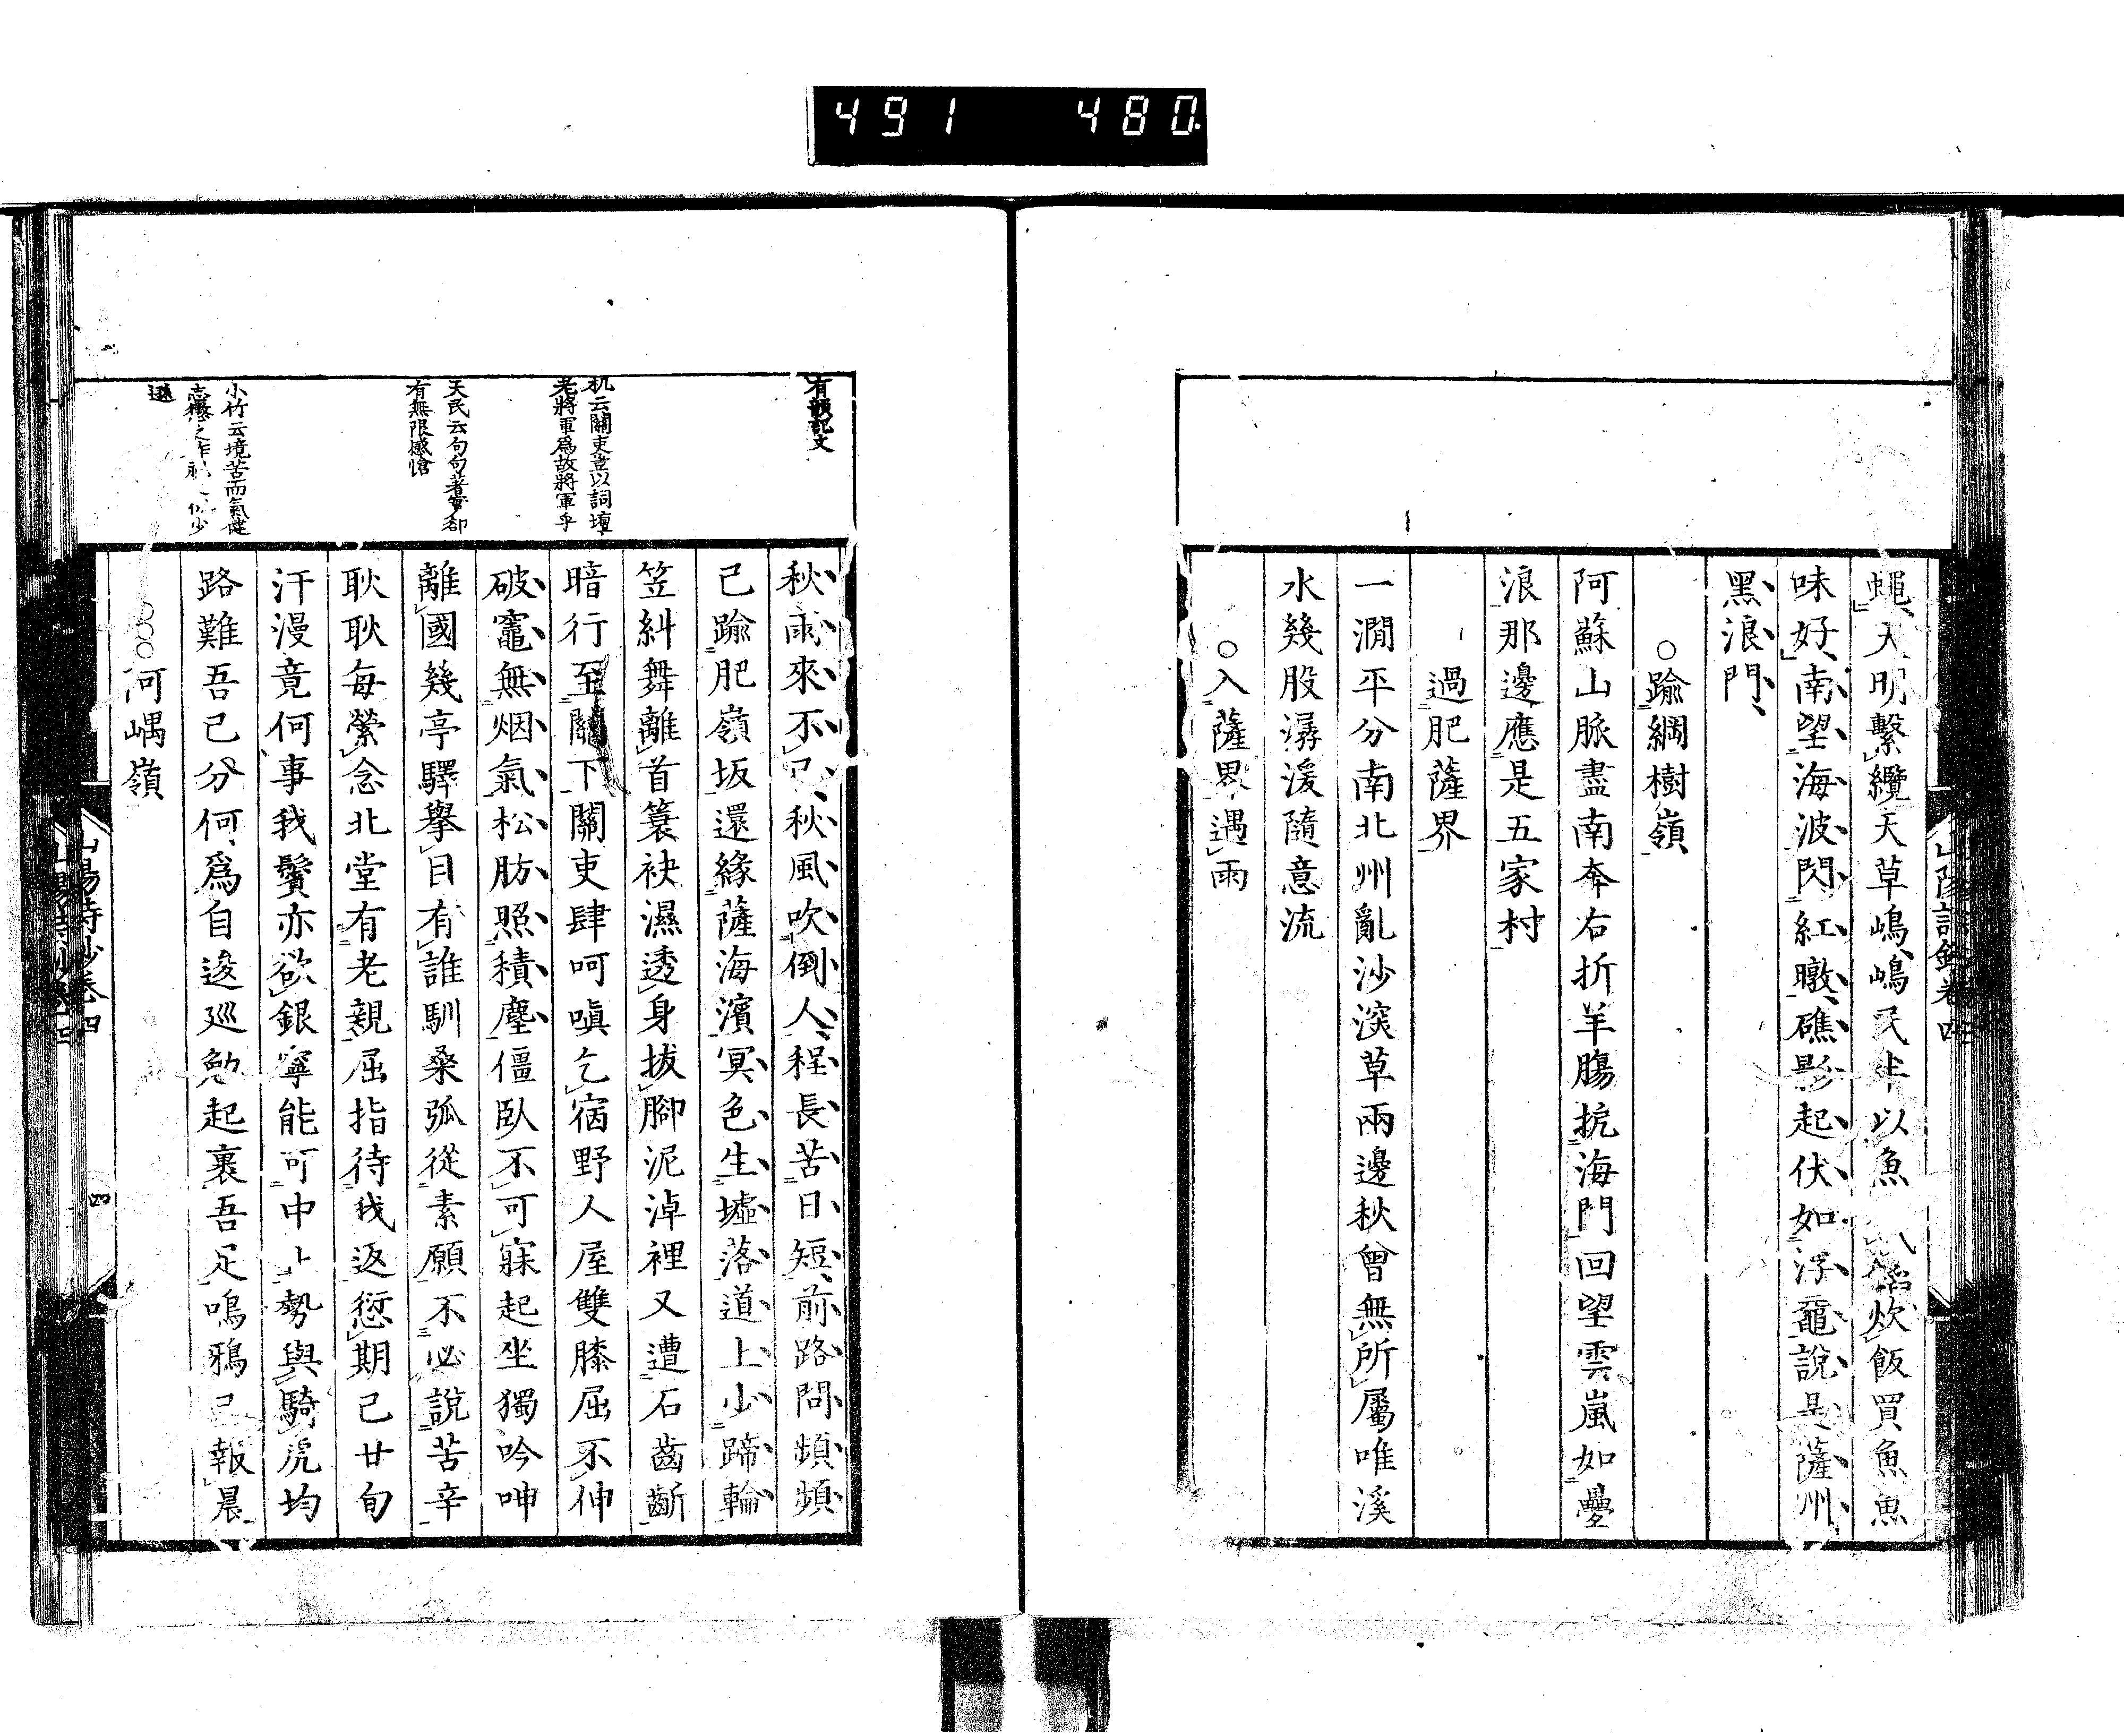 491 480
山陽詩鈔卷四
蠅天明繫纜天草嶋嶋民半以魚 稻炊飯買魚魚
味好南望海波閃紅暾礁影起伏如浮黿說是薩州
黑浪門
○踰綱樹嶺
阿蘇山脈盡南奔右折羊腸抗海門回望雲嵐如疊
浪那邊應是五家村
過肥薩界
一澗平分南北州亂沙深草兩邊秋曾無所屬唯溪
水幾股潺湲隨意流
○入薩界遇雨
有韻記文
杌云關吏豈以詞壇
老將軍爲故將軍乎
天民云句句著實却
有無限感愴
小竹云境苦而氣健
志 之作 似少
遜
秋雨來不已秋風吹倒人程長苦日短前路問頻頻
已踰肥嶺坂還緣薩海濱冥色生墟落道上少蹄輪
笠糾舞離首簑袂濕透身拔腳泥淖裡又遭石齒齗
暗行至關下關吏肆呵嗔乞宿野人屋雙膝屈不伸
破竈無烟氣松肪照積塵僵臥不可寐起坐獨吟呻
離國幾亭驛擧目有誰馴桑弧從素願不必說苦辛
耿耿每縈念北堂有老親屈指待我返愆期已廿旬
汗漫竟何事我鬢亦欲銀寧能可中止勢與騎虎均
路難吾已分何爲自逡巡勉起裹吾足鳴鴉已報晨
○○○阿嵎嶺
山陽詩鈔卷四
四